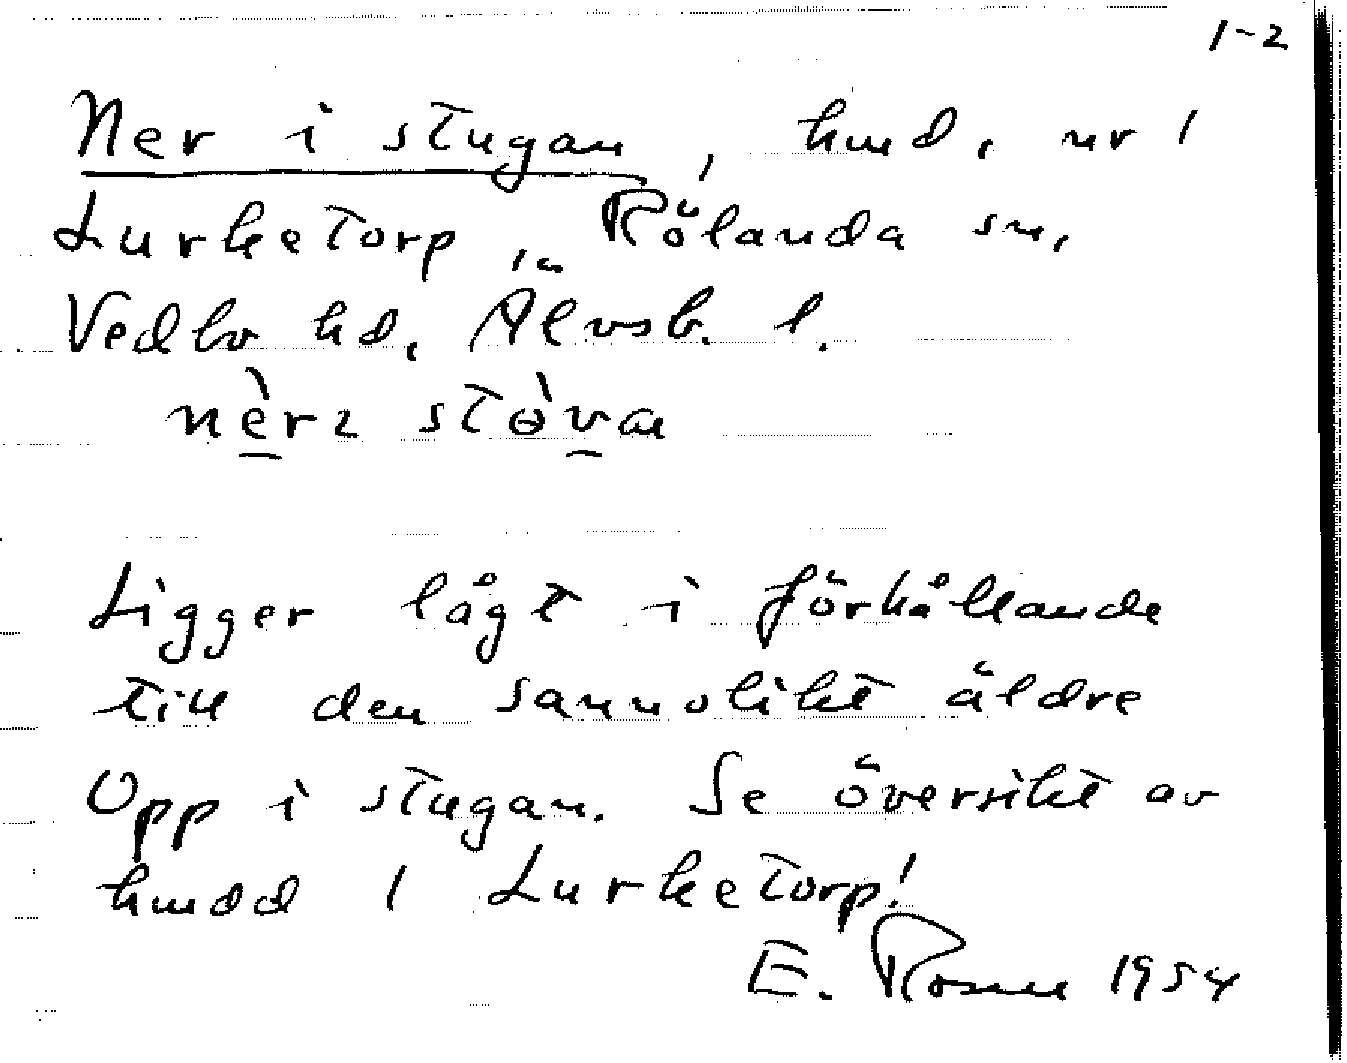 1-2
Ner i stugan, hmd, nr 1
Lurketorp, Rölanda sn,
Vedbo hd, Älvsb. l.
nèrɩ stɵ̀van
Ligger lågt i förhållande
till den sannolikt äldre
Opp i stugan. Se översikt av
hmdd 1 Lurketorp!
E. Rosen 1954